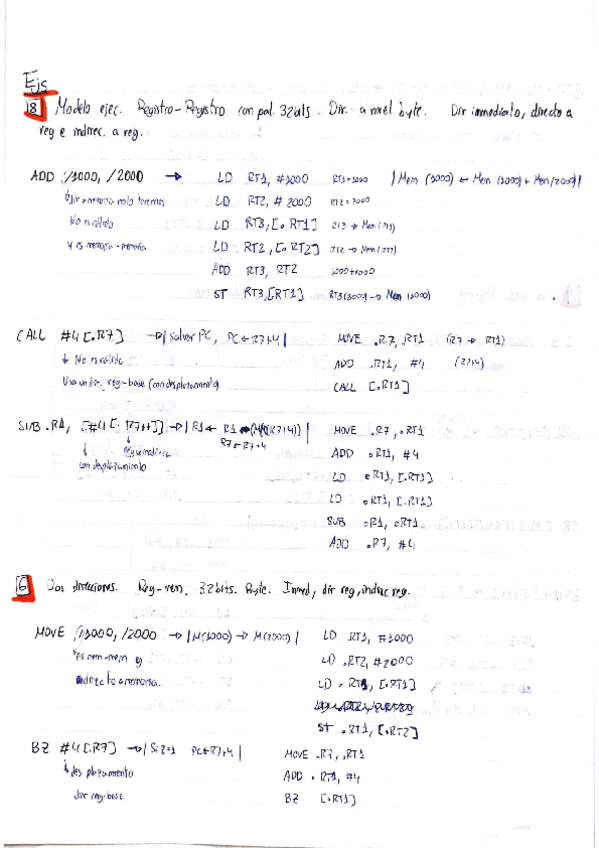 Ejs
8 Modelo ejec. Registro-Registro con pal. 32 bits. Dir. a nivel byte. Dir inmediato, directo a
reg e indirec. a reg.
ADD /3000, /2000 → LD RT1, #3000 RT1=3000 | Mem (3000) ← Mem (3000) + Mem(2000) |
LD RT2, #2000
No es válido LD RT3, [.RT1]
y es memoria-memoria LD RT2, [.RT2]
ADD RT3, RT2
ST RT3, [RT1]
CALL #4[.R7] → | Salvar PC, PC ← R7+4 | MOVE .R7, .RT1 (R7 → RT1)
↓ No es válido ADD .RT1, #4
Usa un dir. reg-base (con desplazamiento) CALL [.RT1]
SUB .R1, [#4[.R7++]] → MOVE .R7, .RT1
ADD .RT1, #4
con desplazamiento LD .RT1, [.RT1]
LD .RT1, [.RT1]
SUB .R1, .RT1
ADD .R7, #4
6 Dos direcciones. Reg-mem. 32 bits. Byte. Inmed, dir reg, indirec reg.
MOVE /3000, /2000 → LD .RT1, #3000
Es mem-mem y LD .RT2, #2000
directo a memoria. LD .RT1, [.RT1]
ST .RT1, [.RT2]
BZ #4[.R7] → | Si Z=1 PC ← R7+4 | MOVE .R7, .RT1
↓ desplazamiento ADD .RT1, #4
dir reg-base BZ [.RT1]